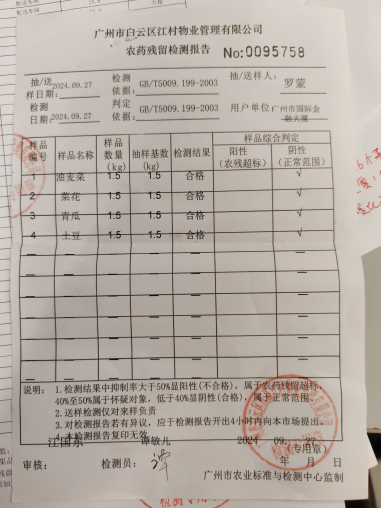 广州市白云区江村物业管理有限公司
农药残留检测报告 No:0095758
抽/送样日期: 2024.09.27 检测依据: GB/T5009.199-2003 抽/送样人: 罗蒙
检测日期: 2024.09.27 判定依据: GB/T5009.199-2003 用户单位: 广州市国际金融大厦
样品编号 样品名称 样品数量(kg) 抽样基数(kg) 检测结果 样品综合判定
阳性(农残超标) 阴性(正常范围)
1 油麦菜 1.5 1.5 合格 √
2 菜花 1.5 1.5 合格 √
3 青瓜 1.5 1.5 合格 √
4 土豆 1.5 1.5 合格 √
说明: 1.检测结果中抑制率大于50%显阳性(不合格), 属于农药残留超标,
40%至50%属于怀疑对象, 低于40%显阴性(合格), 属于正常范围。
2.送样检测仅对来样负责
3.对检测报告若有异议, 应于检测报告开出4小时内向本市场提出。
4.本检测报告复印无效
江国东 谭敏儿 2024 09. 27
(专用章)
审核: 检测员: 谭 年 月 日
广州市农业标准与检测中心监制